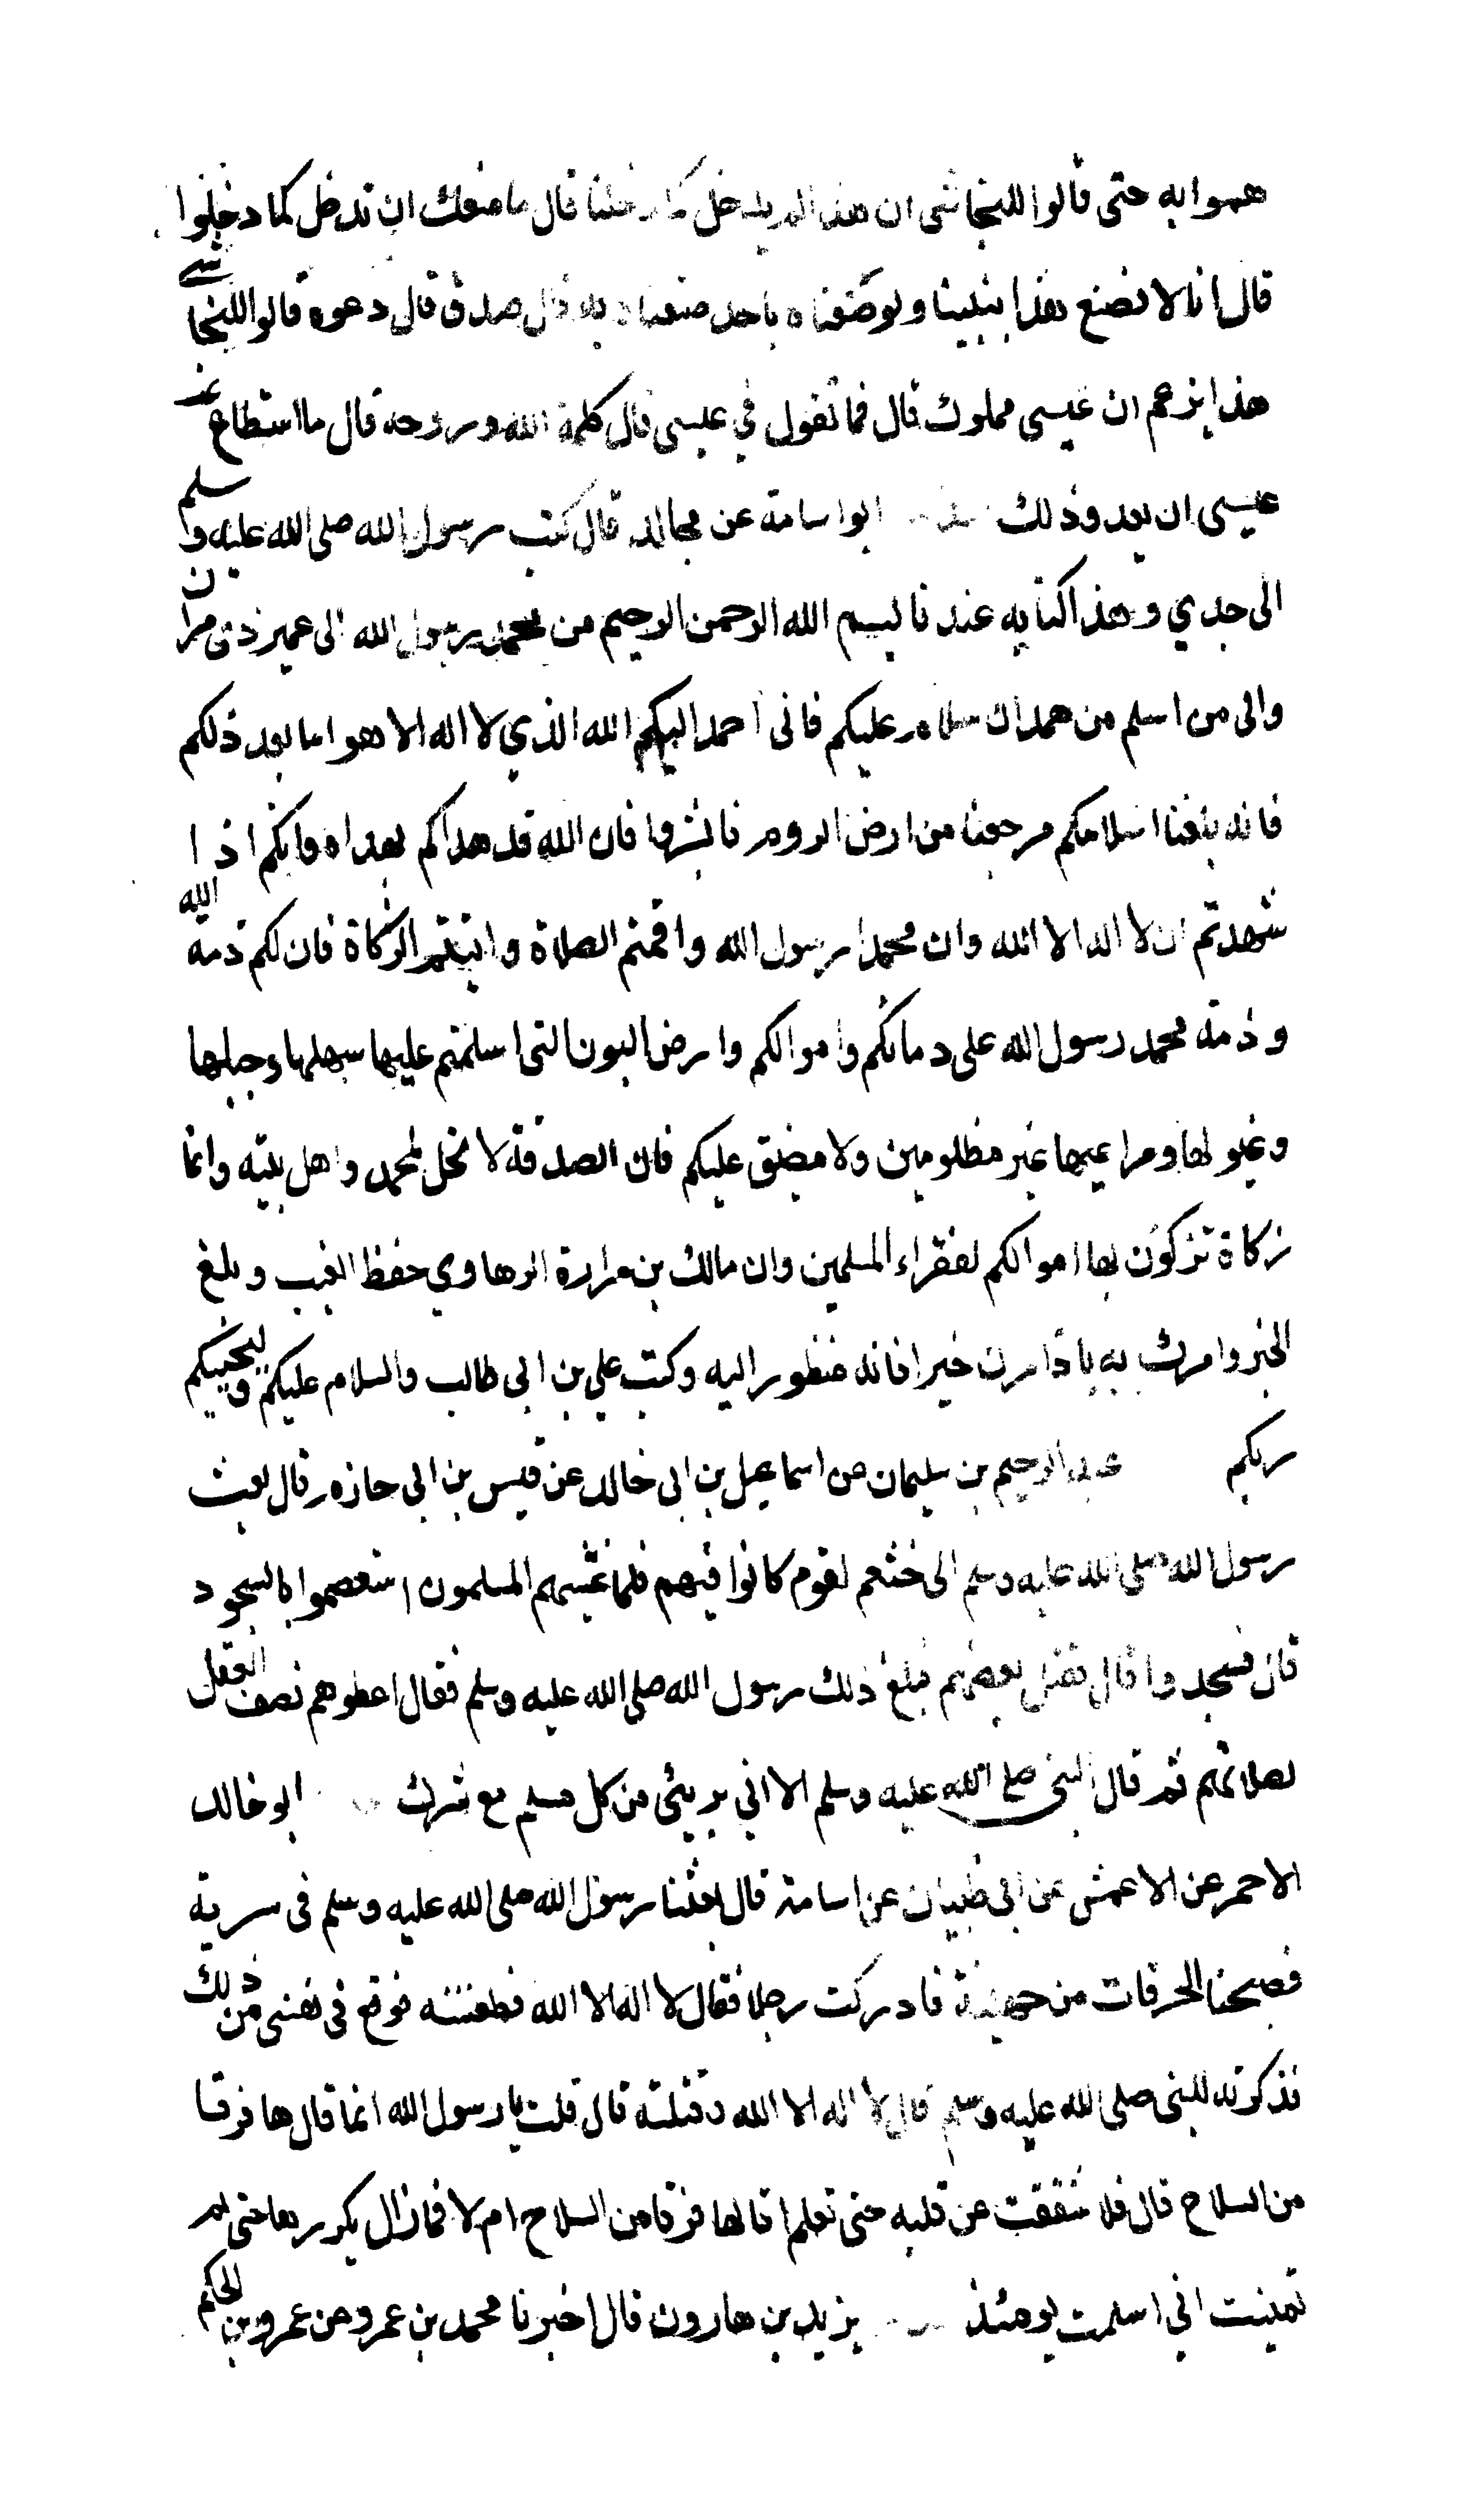 هموا به حتى قالوا للنجاشى ان هذا لم يدخل كما دخلنا قال ما منعك ان تدخل كما دخلوا
قال انا لا نصنع هذا بنبينا ولو صنعناه باحد صنعناه به قال صدق قال دعوه قالوا للنجاشي
هذا يزعم ان عيسى مملوك قال فما تقول في عيسى قال كلمة الله وروحه قال ما استطاع
عيسى ان يعدو ذلك ابو اسامة عن مجالد قال كتب رسول الله صلى الله عليه وسلم
الى جدي وهذا كتابه عندنا بسم الله الرحمن الرحيم من محمد رسول الله الى عمير ذى مران
والى من اسلم من همدان سلام عليكم فانى احمد اليكم الله الذي لا اله الا هو اما بعد ذلكم
فانه بلغنا اسلامكم مرجعنا من ارض الروم فابشروا فان الله قد هداكم بهداه وانكم اذا
شهدتم ان لا اله الا الله وان محمدا رسول الله واقمتم الصلاة واتيتم الزكاة فان لكم ذمة الله
وذمة محمد رسول الله على دمائكم واموالكم وارض البون التى اسلمتم عليها سهلها وجبلها
وغيولها ومراعيها غير مظلومين ولا مضيق عليكم فان الصدقة لا تحل لمحمد واهل بيته وانما
زكاة تزكون بها اموالكم لفقراء المسلمين وان مالك بن مرارة الرهاوي حفظ الغيب وبلغ
الخبر وامرك به يا ذا مران خيرا فانه منظور اليه وكتب علي بن ابى طالب والسلام عليكم وليحييكم
ربكم عبد الرحيم بن سليمان عن اسماعيل بن ابى خالد عن قيس بن ابي حازم قال بعث
رسول الله صلى الله عليه وسلم الى خثعم لقوم كانوا فيهم فلما غشيهم المسلمون استعصموا بالسجود
قال فسجدوا قال فقتل بعضهم فبلغ ذلك رسول الله صلى الله عليه وسلم فقال اعطوهم نصف العقل
لصلاتهم ثم قال النبى صلى الله عليه وسلم الا اني بريئ من كل مسلم مع شرك ابو خالد
الاحمر عن الاعمش عن ابى ظبيان عن اسامة قال بعثنا رسول الله صلى الله عليه وسلم فى سرية
فصبحنا الحرقات من جهينة فادركت رجلا فقال لا اله الا الله فطعنته فوقع فى نفسى من ذلك
فذكرته للنبى صلى الله عليه وسلم قال لا اله الا الله وقتلته قال قلت يا رسول الله انما قالها فرقا
من السلاح قال فلا شققت عن قلبه حتى تعلم اقالها فرقا من السلاح ام لا فما زال يكررها حتى
تمنيت اني اسلمت يومئذ يزيد بن هارون قال اخبرنا محمد بن عمرو عن عمرو بن الحكم